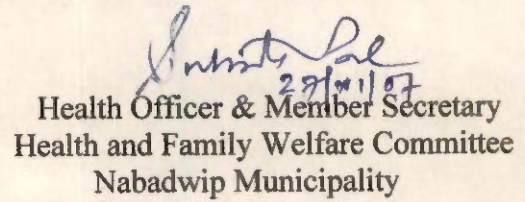 Health Officer & Member Secretary
Health and Family Welfare Committee
Nabadwip Municipality